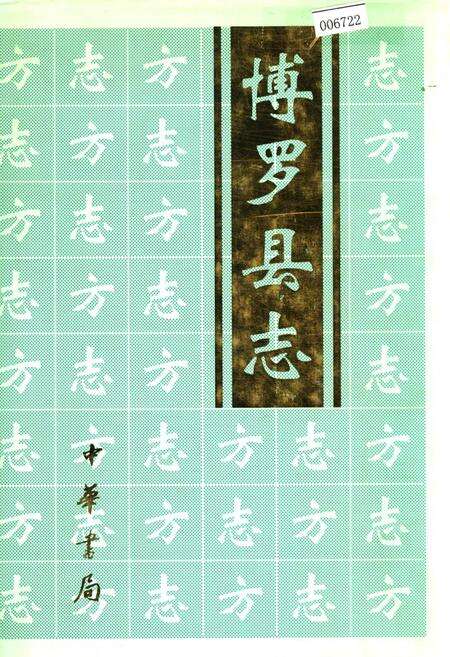 006722
博罗县志
中華書局
方志方志
志方志方
方志方志
志方志方
方志方志
志方志方志方
方志方志方志
志方志方志方